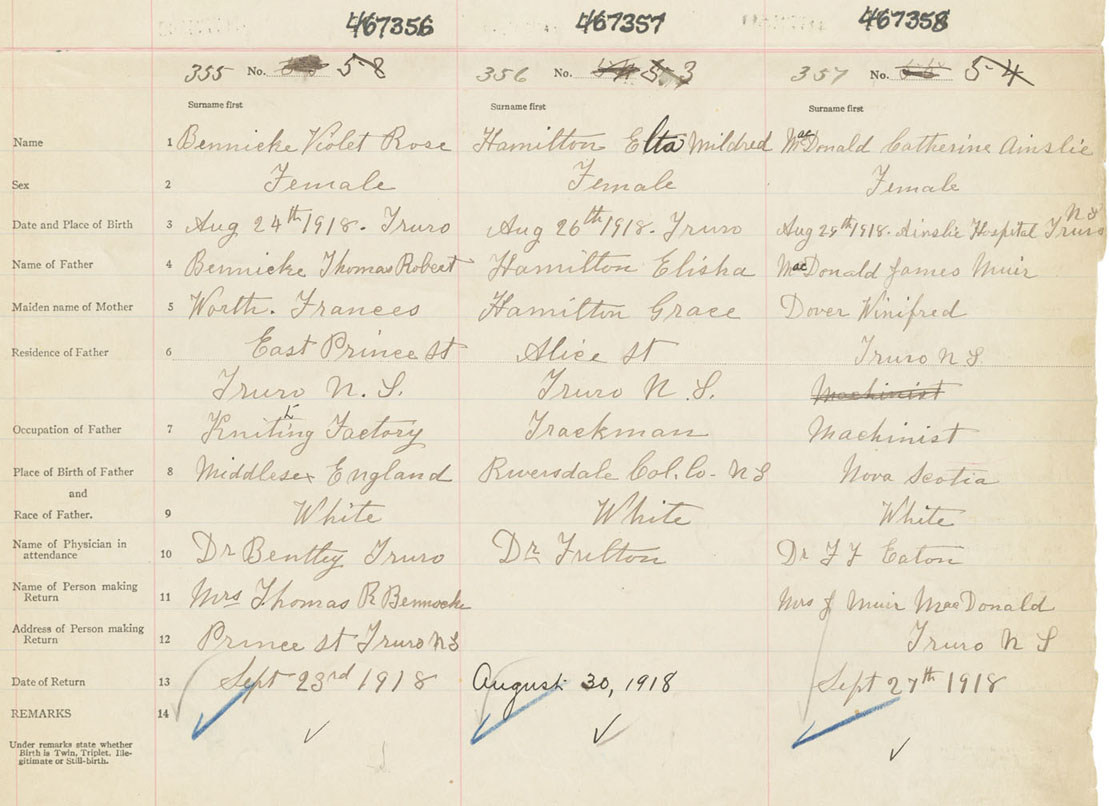 467356 467357 467358
355 No. 5-8 356 No. 5-3 357 No. 5-4
Surname first Surname first Surname first
Name 1 Bennicke Violet Rose Hamilton Elta Mildred MacDonald Catherine Ainslie
Sex 2 Female Female Female
N S
Date and Place of Birth 3 Aug 24th 1918. Truro Aug 26th 1918. Truro Aug 29th 1918. Ainslie Hospital Truro
Name of Father 4 Bennicke Thomas Robert Hamilton Elisha MacDonald James Muir
Maiden name of Mother 5 Worth. Frances Hamilton Grace Dover Winifred
Residence of Father 6 East Prince St Alice St Truro N S.
Truro N. S. Truro N. S. Machinist
Occupation of Father 7 Kniting Factory Trackman Machinist
Place of Birth of Father 8 Middlesex England Riversdale Col. Co- N S Nova Scotia
and
Race of Father. 9 White White White
Name of Physician in
attendance 10 Dr Bentley Truro Dr Fulton Dr F F Eaton
Name of Person making
Return 11 Mrs Thomas R Bennicke Mrs J Muir MacDonald
Address of Person making
Return 12 Prince St Truro N S Truro N S
Date of Return 13 Sept 23rd 1918 August 30, 1918 Sept 27th 1918
REMARKS 14
Under remarks state whether
Birth is Twin, Triplet, Ille-
gitimate or Still-birth.